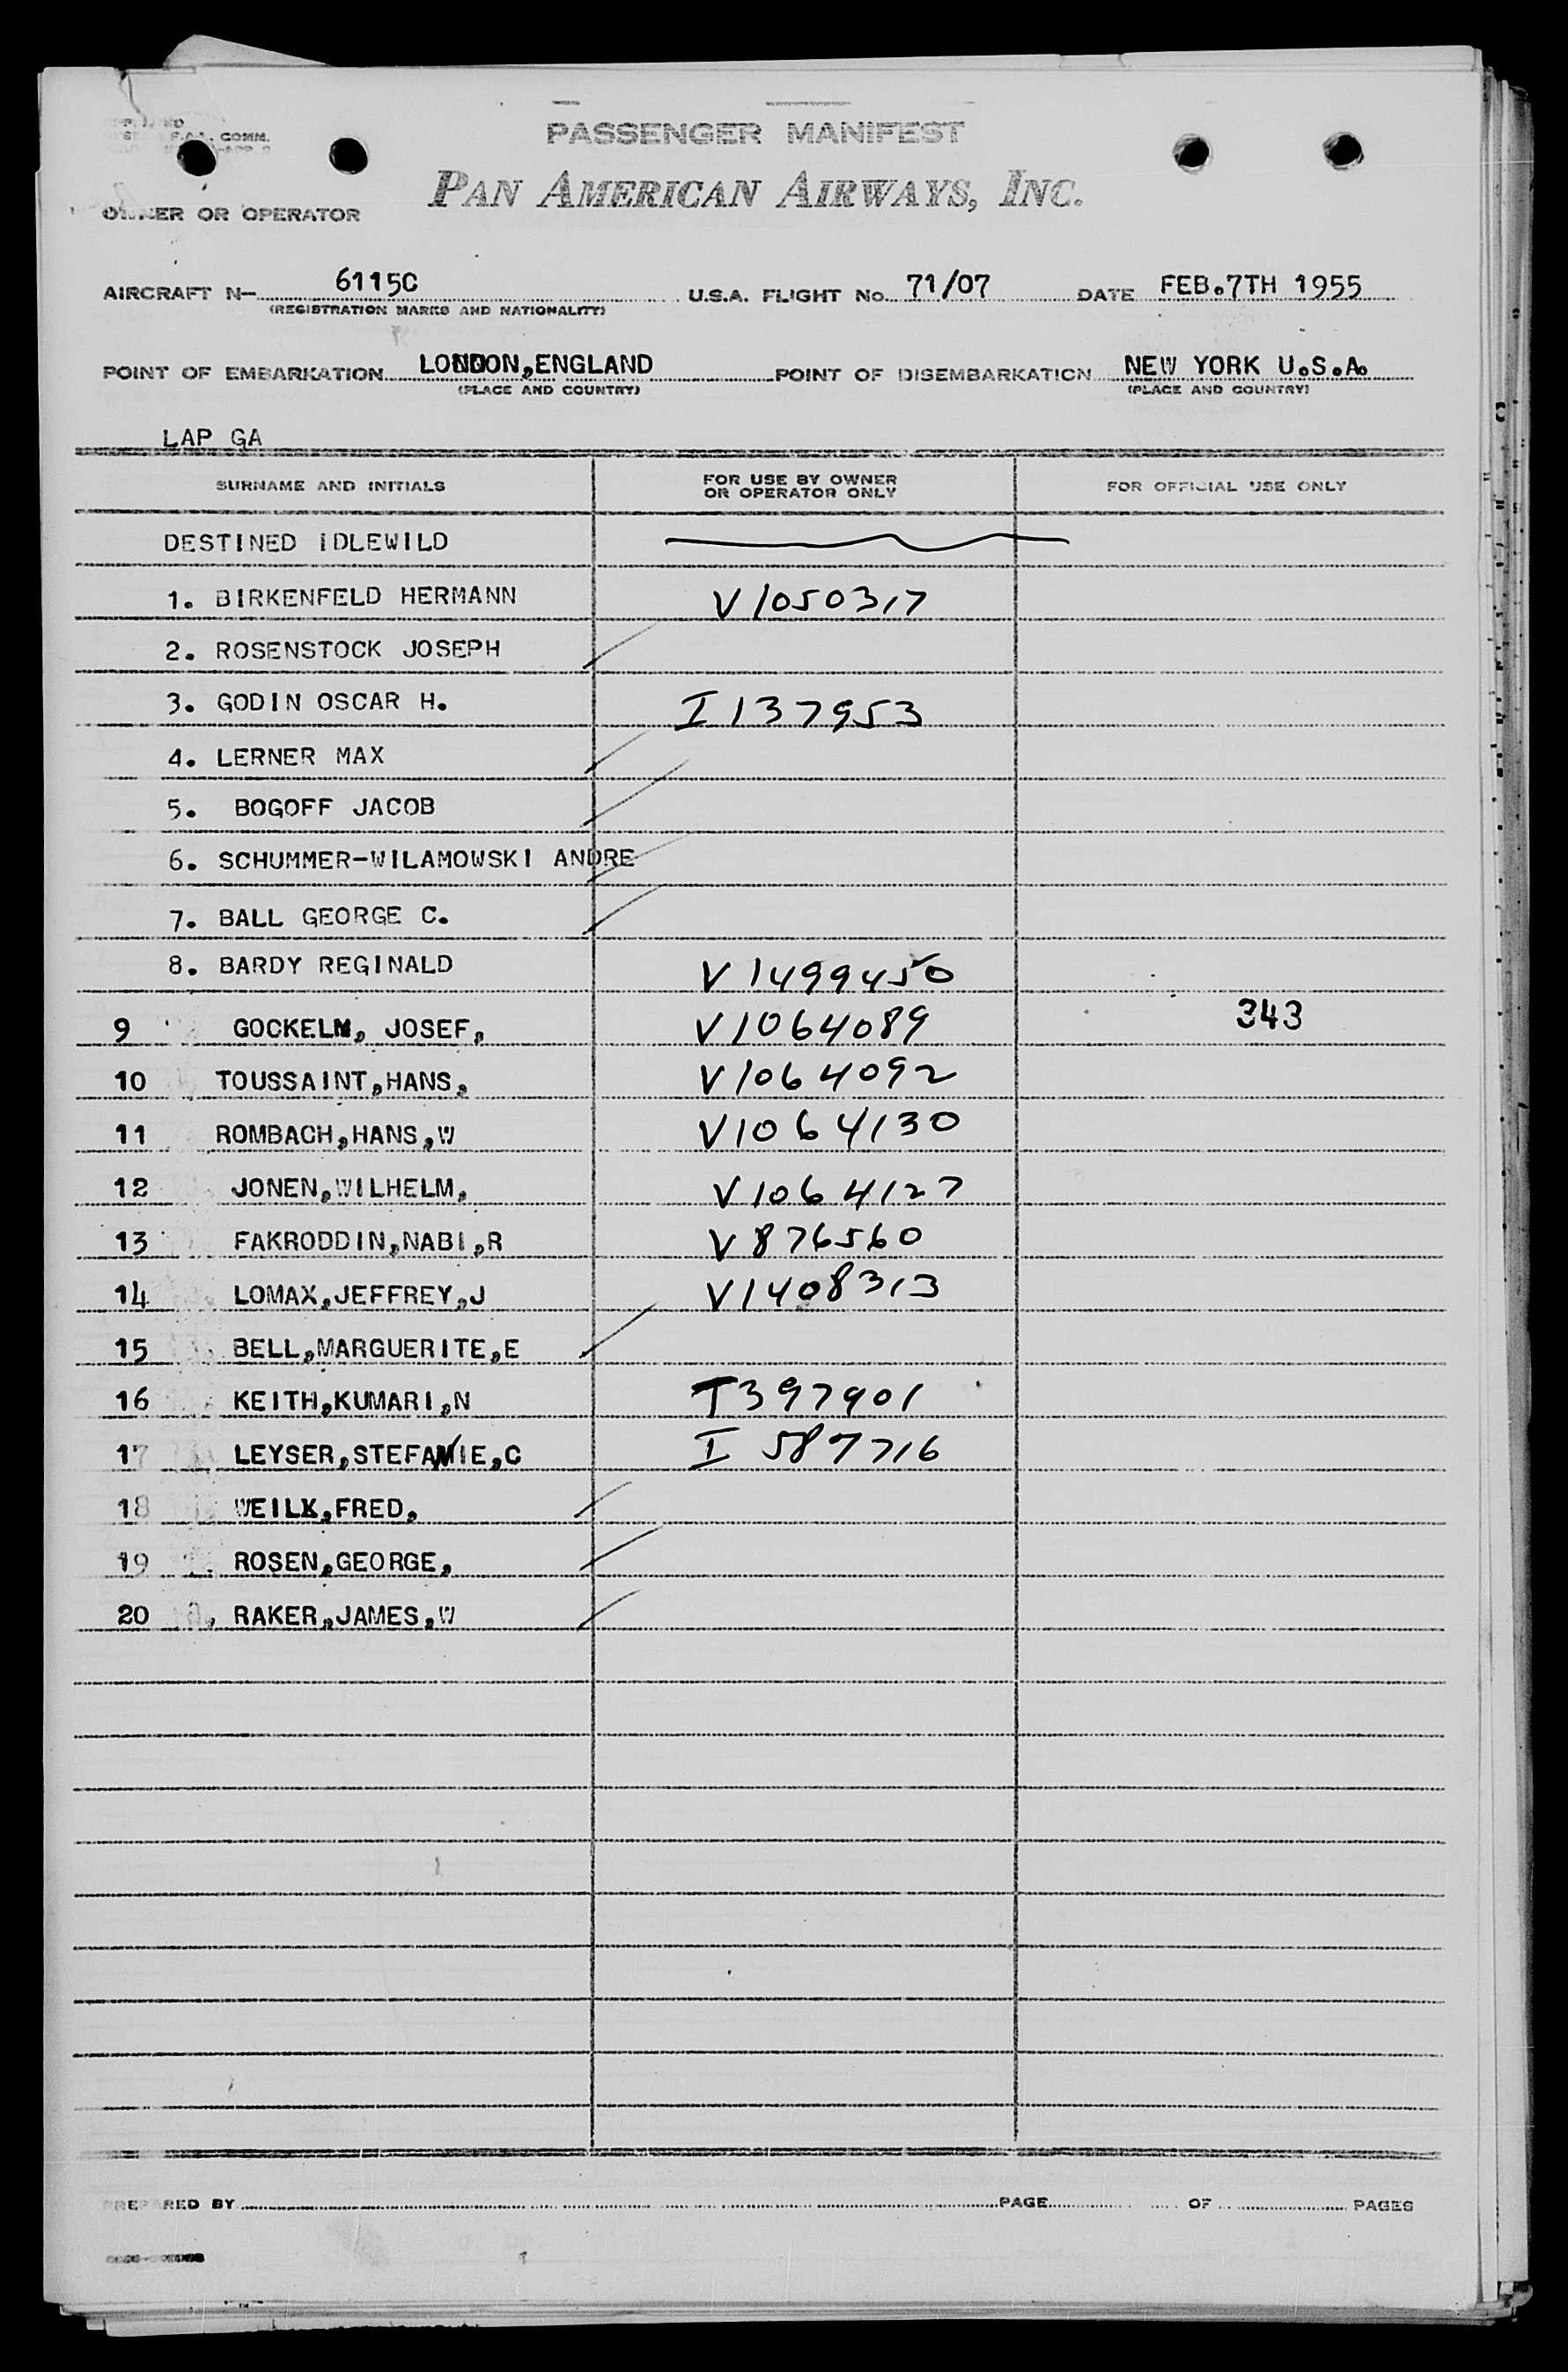 F.A.L. COMM.
PASSENGER MANIFEST
PAN AMERICAN AIRWAYS, INC.
OWNER OR OPERATOR
AIRCRAFT N— 6115C U.S.A. FLIGHT No. 71/07 DATE FEB.7TH 1955
(REGISTRATION MARKS AND NATIONALITY)
POINT OF EMBARKATION LONDON,ENGLAND POINT OF DISEMBARKATION NEW YORK U.S.A.
(PLACE AND COUNTRY) (PLACE AND COUNTRY)
LAP GA
SURNAME AND INITIALS FOR USE BY OWNER OR OPERATOR ONLY FOR OFFICIAL USE ONLY
DESTINED IDLEWILD
1. BIRKENFELD HERMANN V1050317
2. ROSENSTOCK JOSEPH
3. GODIN OSCAR H. I137953
4. LERNER MAX
5. BOGOFF JACOB
6. SCHUMMER-WILAMOWSKI ANDRE
7. BALL GEORGE C.
8. BARDY REGINALD V1499450
9 GOCKELN, JOSEF, V1064089 343
10 TOUSSAINT,HANS, V1064092
11 ROMBACH,HANS,W V1064130
12 JONEN,WILHELM, V1064127
13 FAKRODDIN,NABI,R V876560
14 LOMAX,JEFFREY,J V1408313
15 BELL,MARGUERITE,E
16 KEITH,KUMARI,N T397901
17 LEYSER,STEFANIE,C I 587716
18 WEILK,FRED,
19 ROSEN,GEORGE,
20 RAKER,JAMES,W
PREPARED BY PAGE OF PAGES